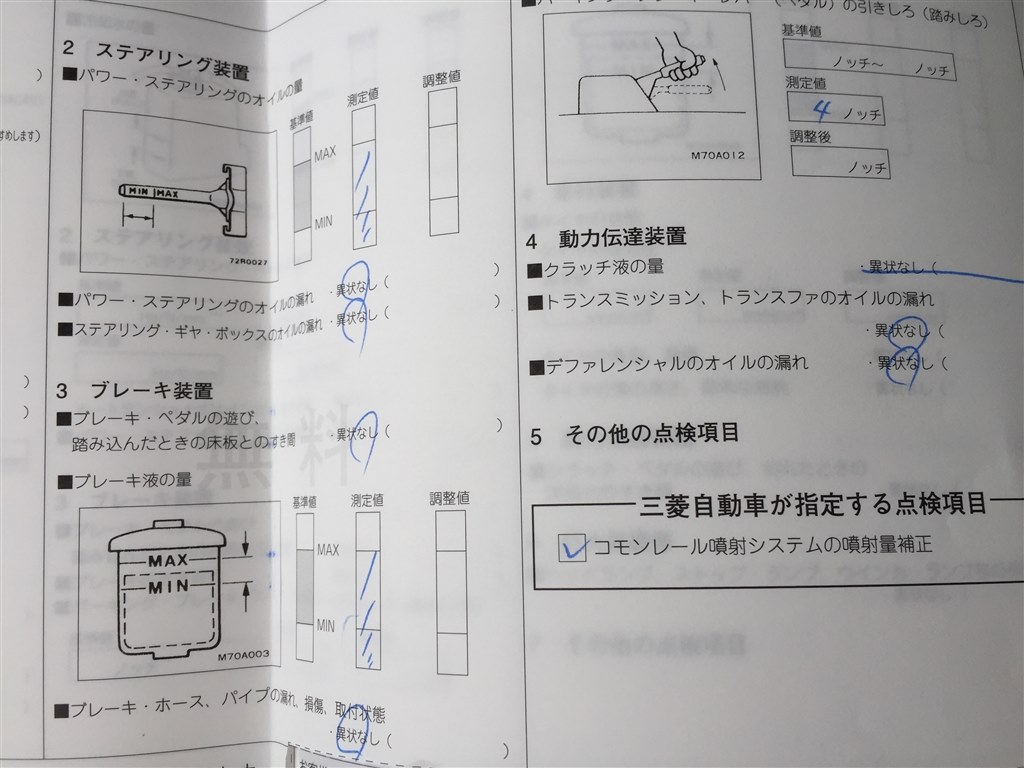 )
すめします)
)
)
2 ステアリング装置
■パワー・ステアリングのオイルの量
基準値
測定値
調整値
MAX
MIN
MIN MAX
72R0027
■パワー・ステアリングのオイルの漏れ ・異状なし( )
■ステアリング・ギヤ・ボックスのオイルの漏れ ・異状なし( )
3 ブレーキ装置
■ブレーキ・ペダルの遊び、
踏み込んだときの床板とのすき間 ・異状なし( )
無料
■ブレーキ液の量
基準値
測定値
調整値
MAX
MIN
MAX
MIN
M70A003
■ブレーキ・ホース、パイプの漏れ、損傷、取付状態
・異状なし( )
(ペダル)の引きしろ(踏みしろ)
基準値
ノッチ~ ノッチ
測定値
4 ノッチ
調整後
ノッチ
M70A012
4 動力伝達装置
■クラッチ液の量 ・異状なし(
■トランスミッション、トランスファのオイルの漏れ
・異状なし(
■デファレンシャルのオイルの漏れ ・異状なし(
5 その他の点検項目
三菱自動車が指定する点検項目
コモンレール噴射システムの噴射量補正